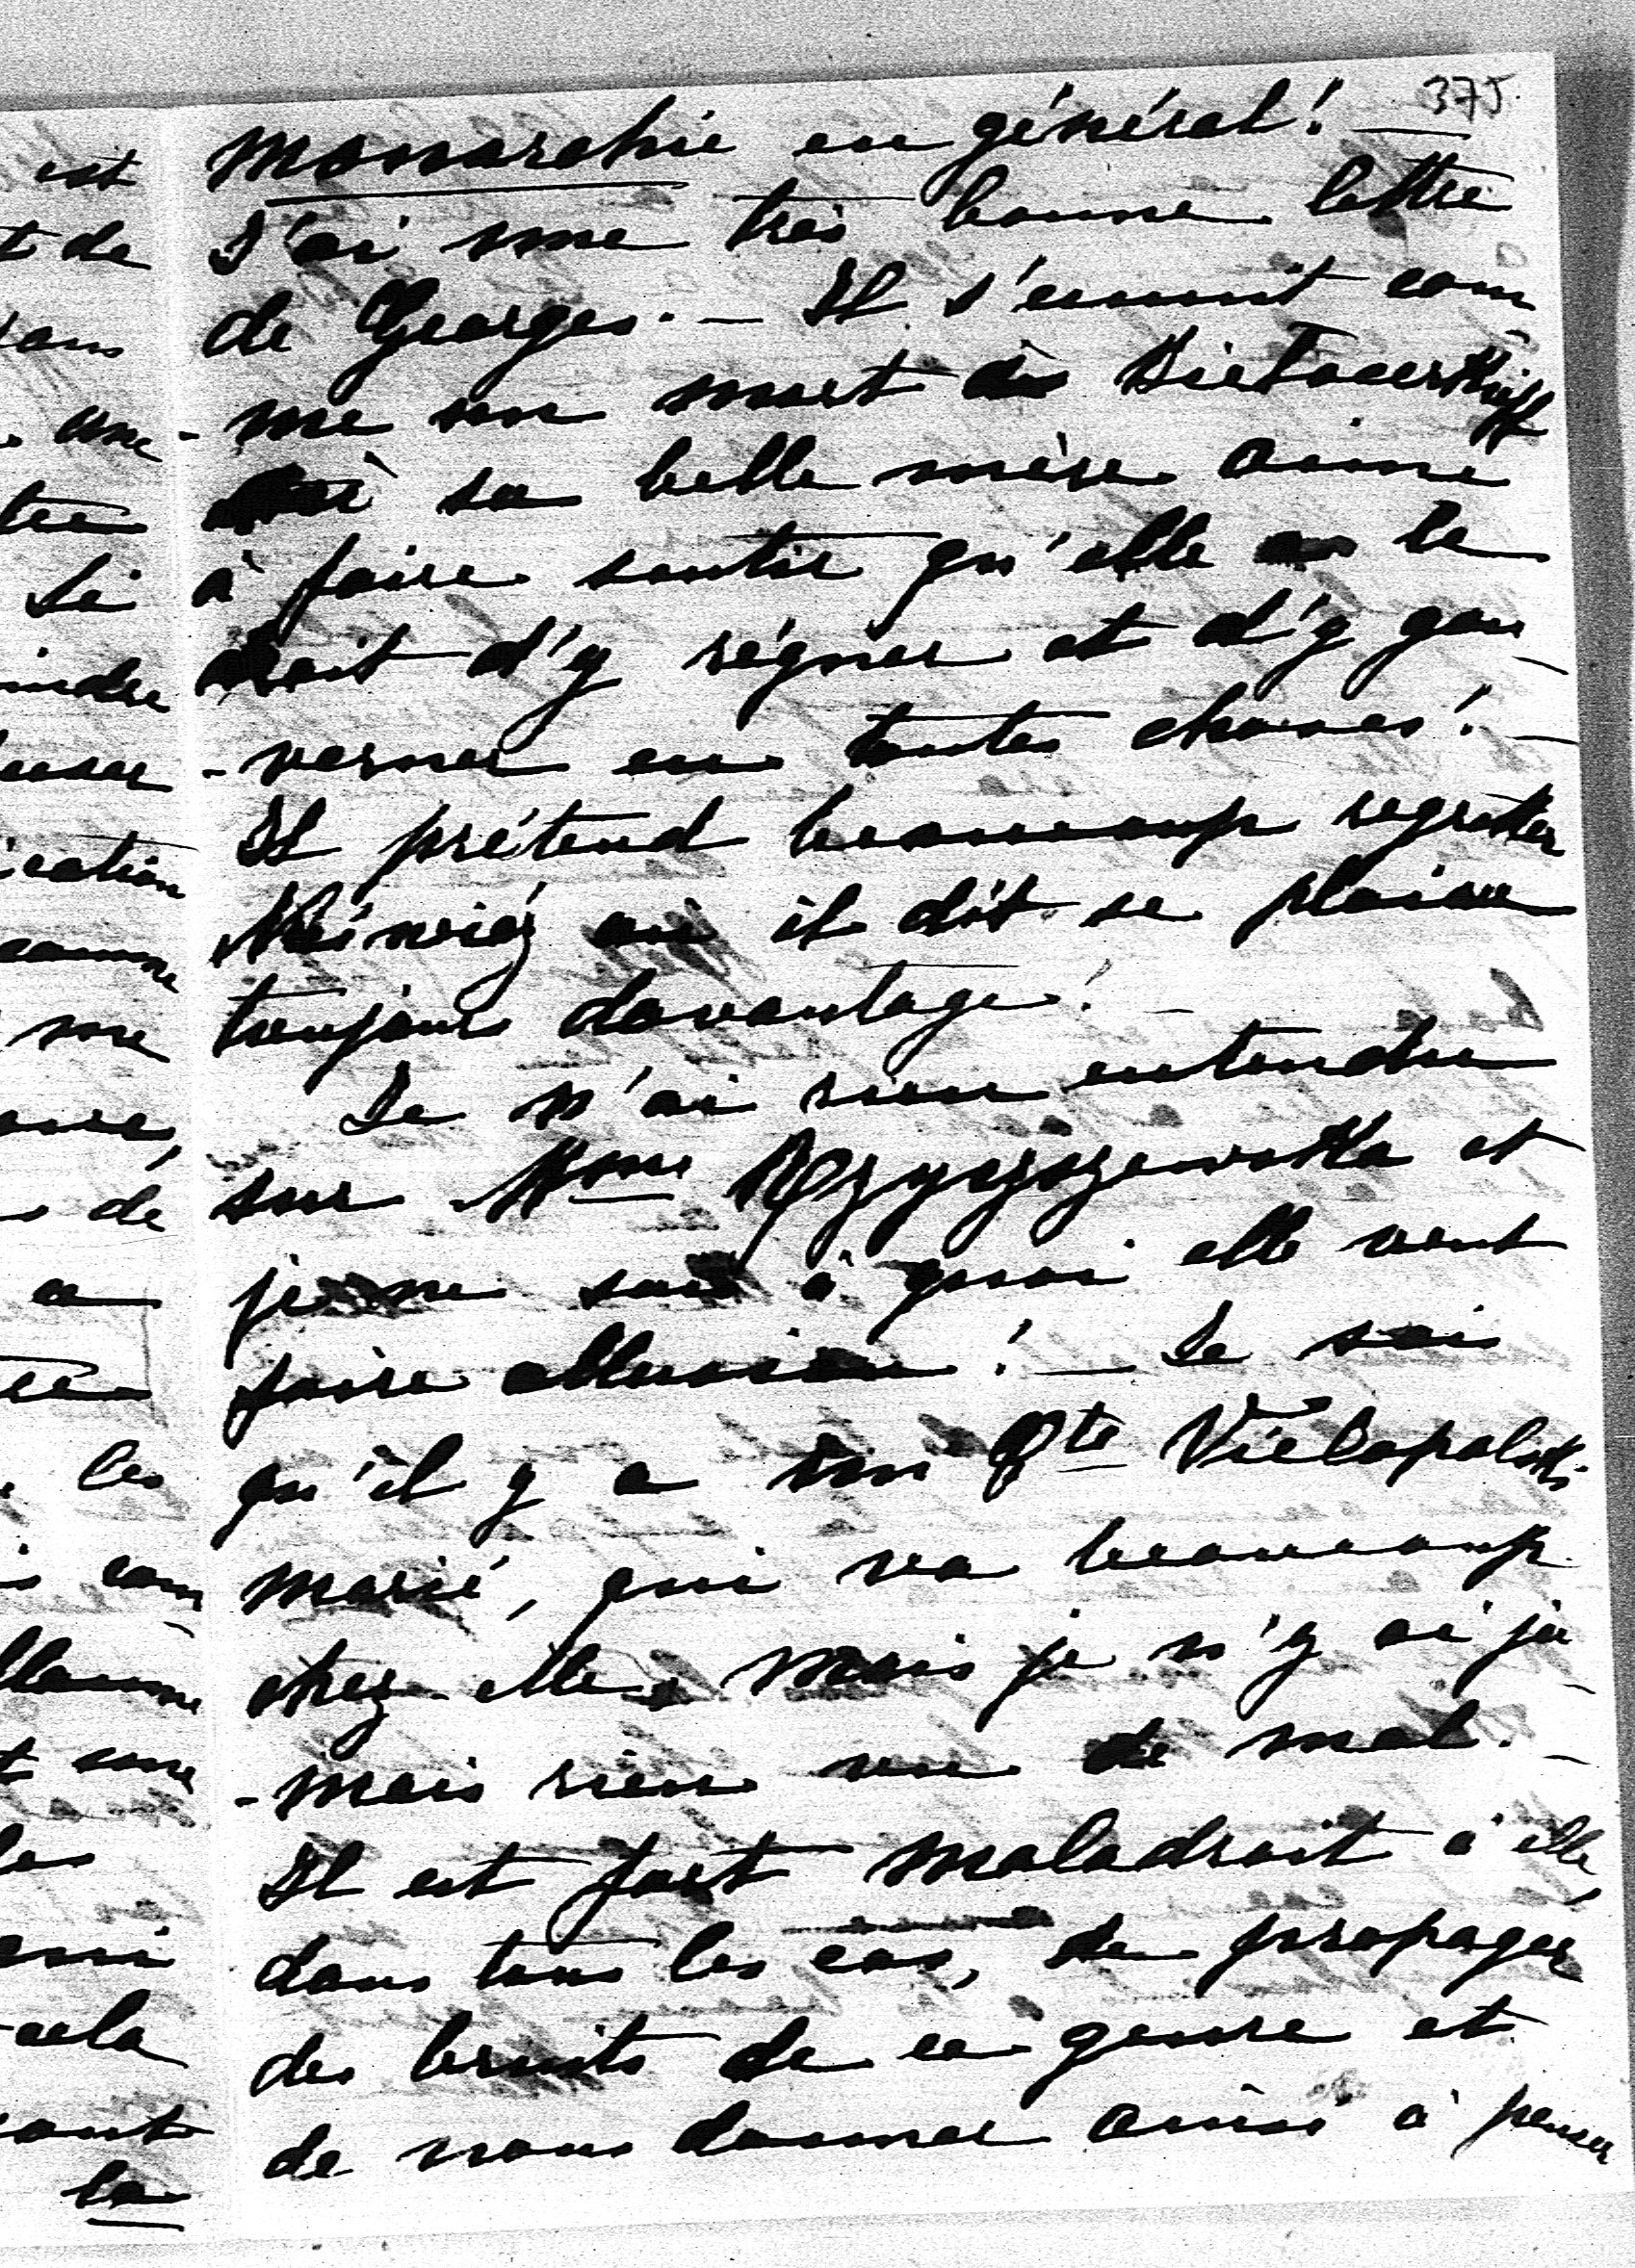 375
monarchie en général! —
J'ai une très bonne lettre
de Georges. — Il s'ennuit com
- me un mort à
où sa belle mère aime
à faire sentir qu'elle a le
droit d'y régner et d'y gou
- verner en toutes choses! —
Il prétend beaucoup regretter
où il dit se plaire
toujours davantage! —
Je n'ai rien entendu
sur Mme et
je ne sais à quoi elle veut
faire allusion! — Je sais
qu'il y a un Cte Vielopolski
marié, qui va beaucoup
chez elle, mais je n'y ai ja
- mais rien vu de mal. —
Il est fort maladroit à elle,
dans tous les cas, de propager
des bruits de ce genre et
de nous donner ainsi à penser
est
t de
une
comme
me
dé
a
les
com
cela
la